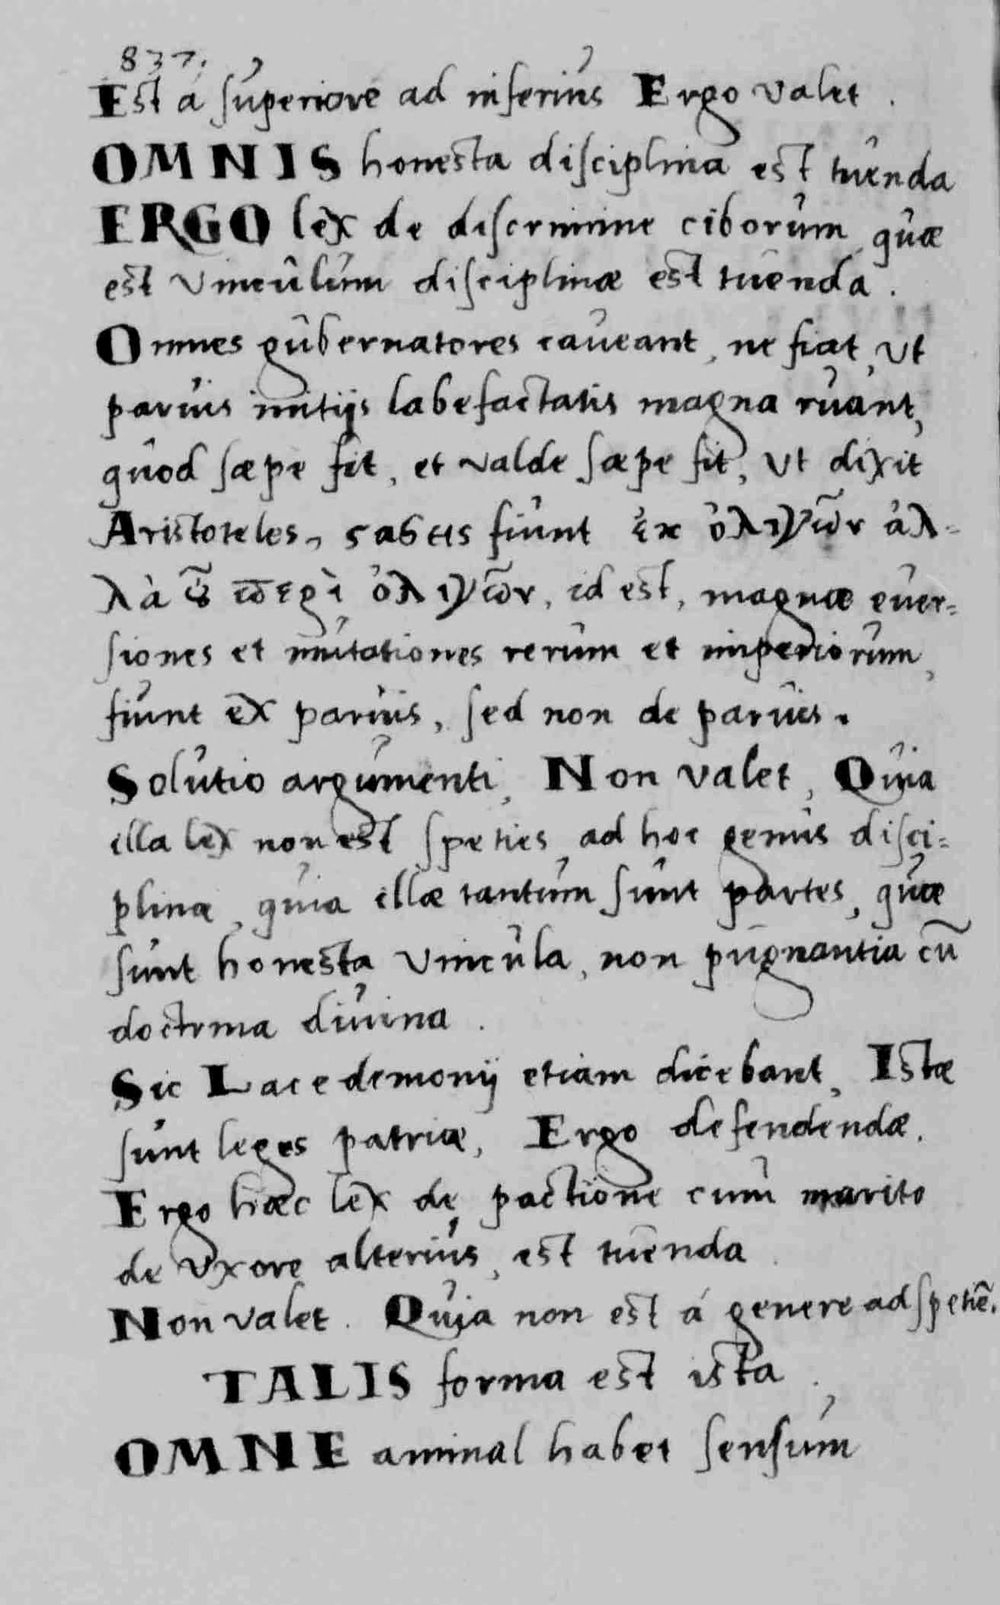 837.
Est á superiore ad inferius Ergo valet .
OMNIS honesta disciplina est tuenda
ERGO lex de discrimine ciborum quæ
est vinculum disciplinæ est tuenda .
Omnes gubernatores caveant, ne fiat, ut
parvis initijs labefactatis magna ruant,
quod sæpe fit, et valde sæpe fit, ut dixit
Aristoteles, ϛάϭεις fiunt ἐκ ὀλιγῶν ἀλ-
λὰ οὐ περὶ ὀλιγῶν, id est, magnæ ever=
siones et mutationes rerum et imperiorum,
fiunt ex parvis, sed non de parvis.
Solutio argumenti, Non valet, Quia
illa lex non est speties ad hoc genus disci=
plinæ, quia illæ tantum sunt partes, quæ
sunt honesta vincula, non pugnantia cū
doctrina divina .
Sic Lacedemonij etiam dicebant, Istæ
sunt leges patriæ, Ergo defendendæ.
Ergo hæc lex de pactione cum marito
de uxore alterius, est tuenda .
Non valet. Quia non est á genere ad spetiē.
TALIS forma est ista .
OMNE animal habet sensum